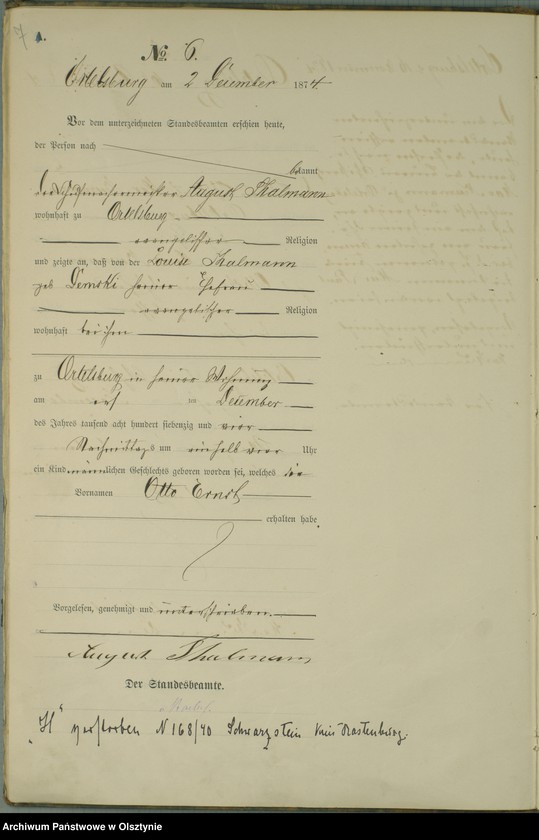 7
A.
No. 6.
Ortelsburg am 2 Dezember 1874
Vor dem unterzeichneten Standesbeamten erschien heute,
der Person nach
bekannt
August Thalmann
wohnhaft zu Ortelsburg
evangelischer Religion
und zeigte an, daß von der Louise Thalmann
geb Demski seiner Ehefrau
evangelischer Religion
wohnhaft bei ihm
zu Ortelsburg in seiner Wohnung
am ten Dezember
des Jahres tausend acht hundert siebenzig und vier
Nachmittags um einhalb vier Uhr
ein Kind männlichen Geschlechts geboren worden sei, welches die
Vornamen Otto Ernst
erhalten habe
Vorgelesen, genehmigt und unterschrieben.
August Thalmann
Der Standesbeamte.
"H" verstorben N 168/40 Schwarzstein Kreis Rastenburg.
Archiwum Państwowe w Olsztynie